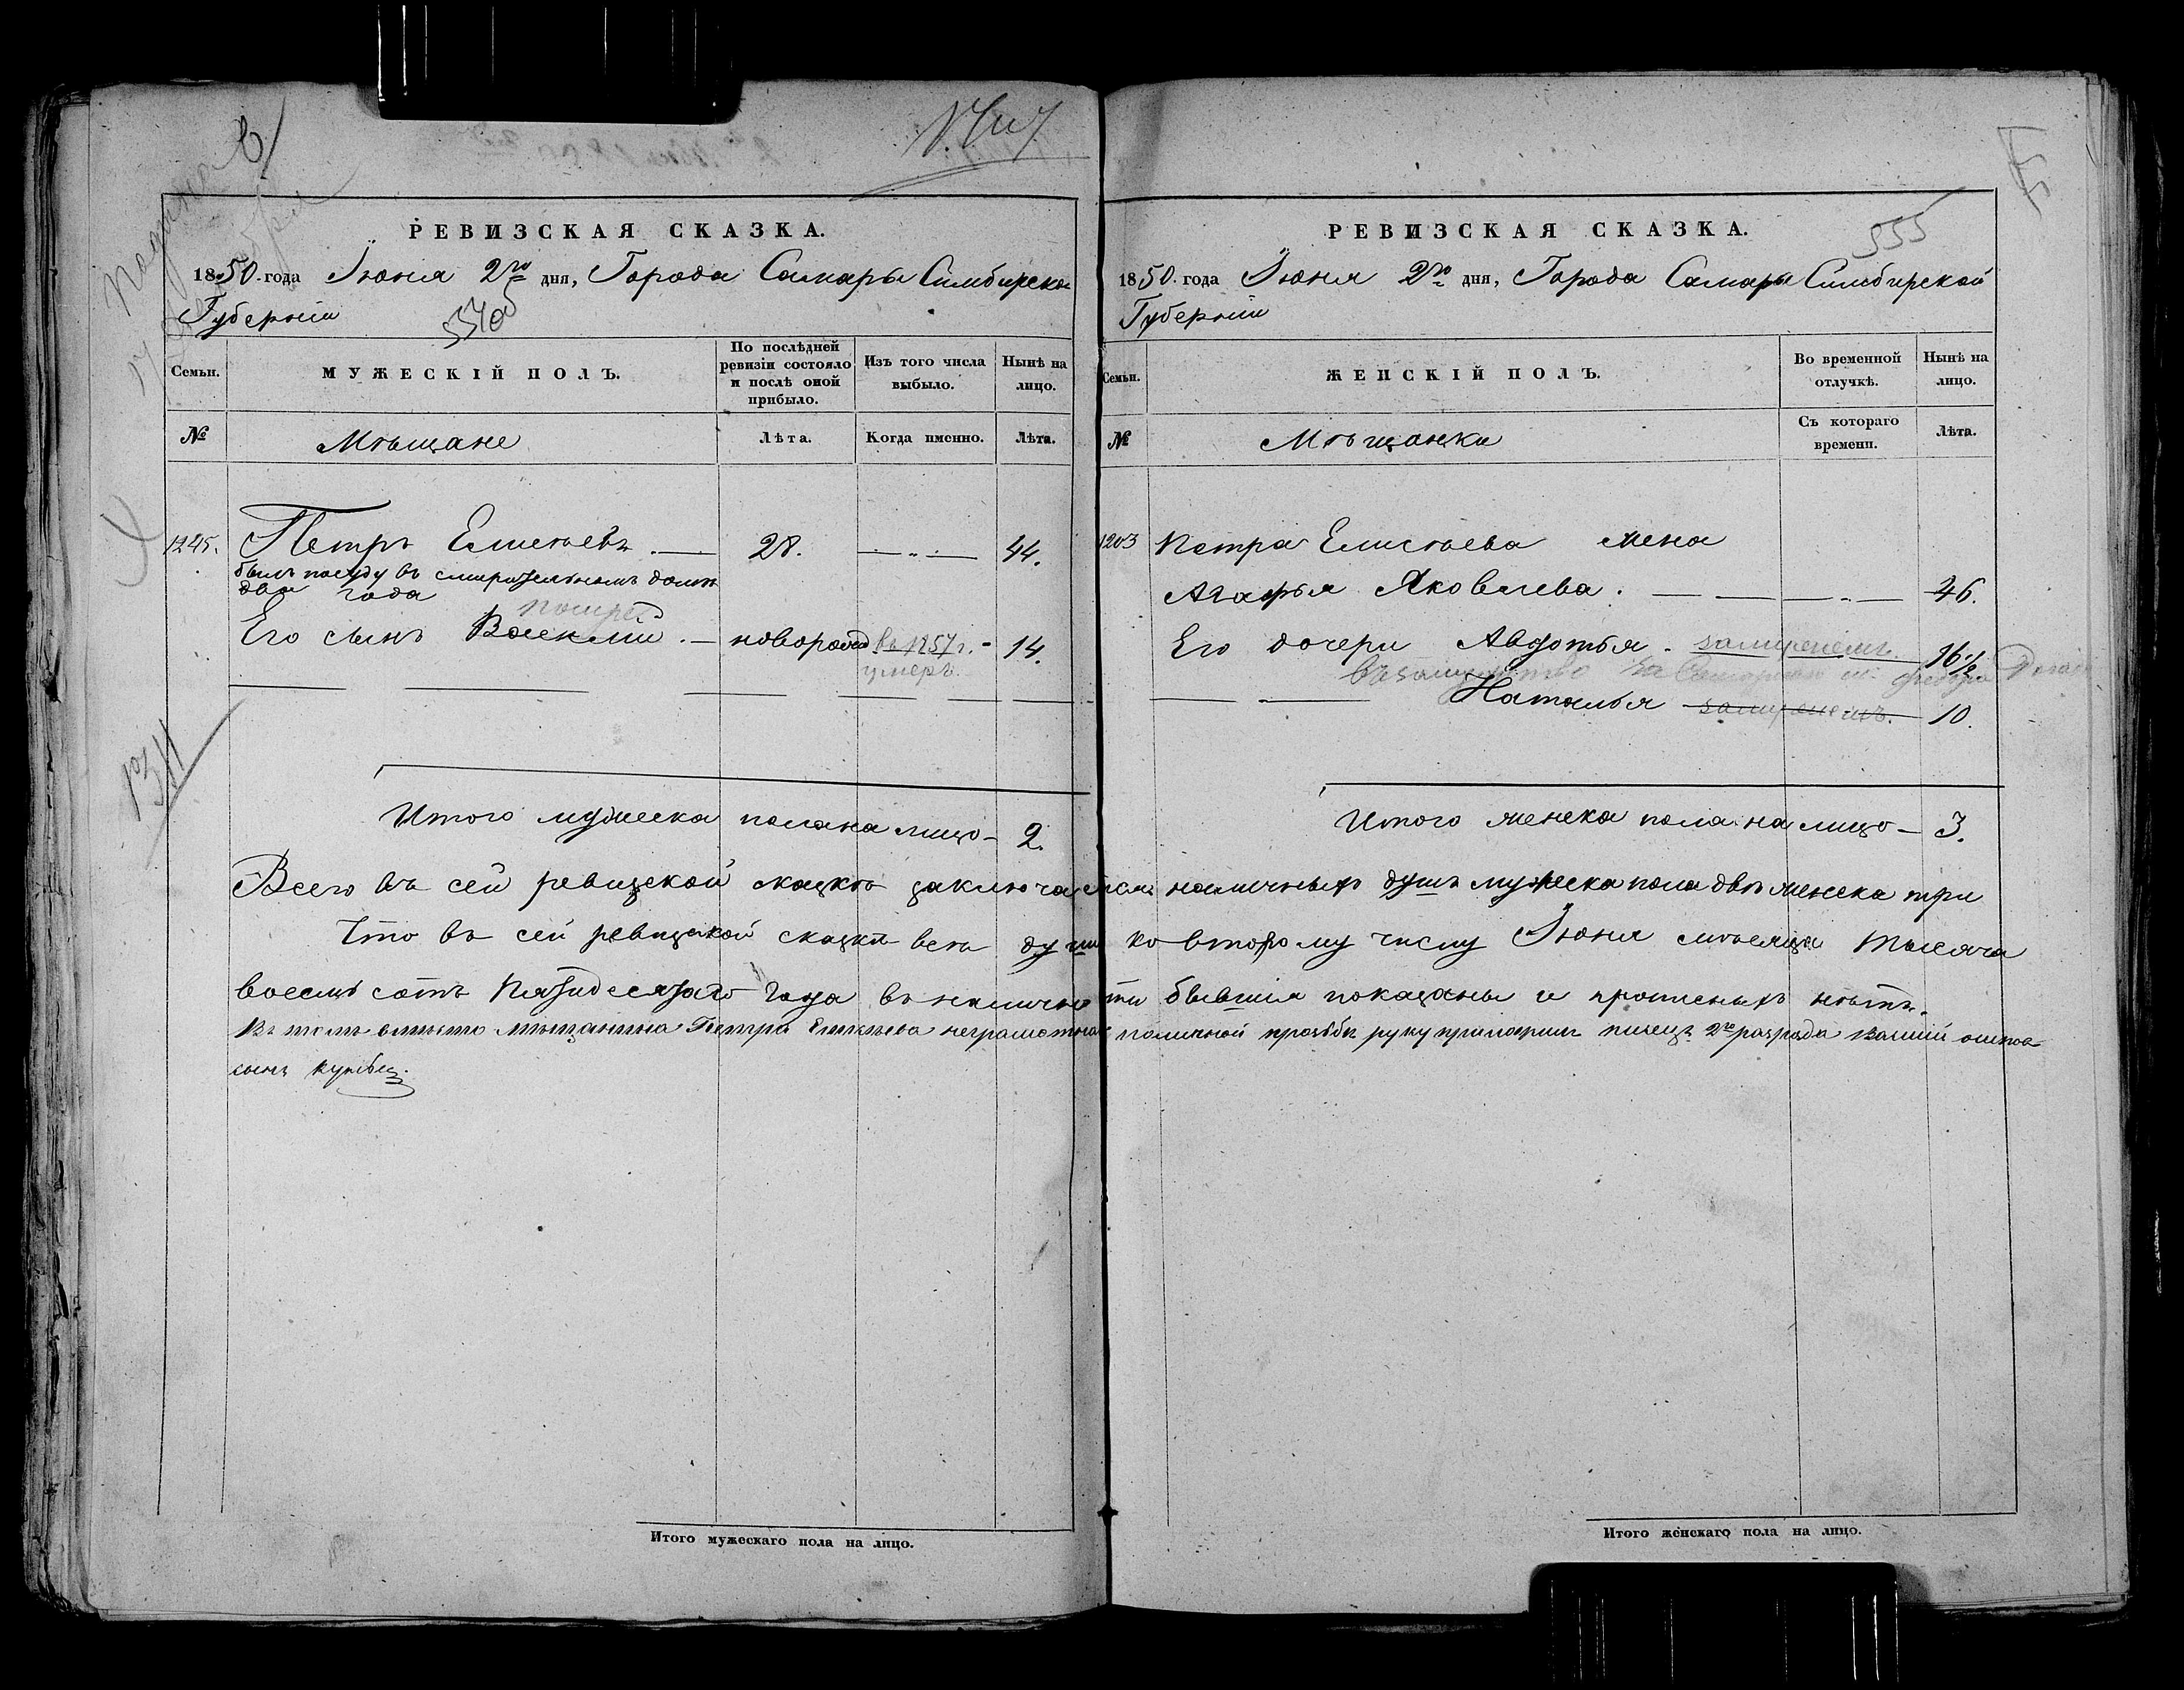 РЕВИЗСКАЯ СКАЗКА.
1850. года Июня 2го дня, Города Самары Симбирской
Губернiи
554об
Семьи.
МУЖЕСКIЙ ПОЛЪ.
По послѣдней ревизiи состояло и послѣ оной прибыло.
Изъ того числа выбыло.
Нынѣ на лицо.
№
Мѣщане
Лѣта.
Когда именно.
Лѣта.
1245. Петръ Елисѣевъ. 28. 44.
былъ по суду въ смирительномъ домѣ
два года
Его сынъ Василiй. новорожд въ 1857 г. 14.
умеръ.
Итого мужеска пола на лицо 2.
РЕВИЗСКАЯ СКАЗКА.
555
1850. года Июня 2го дня, Города Самары Симбирской
Губернiи
Семьи.
ЖЕНСКIЙ ПОЛЪ.
Во временной отлучкѣ.
Нынѣ на лицо.
№
Мѣщанки
Съ котораго времени.
Лѣта.
1203 Петра Елисѣева жена
Агафья Яковлева. 46.
Его дочери Авдотья. замужемъ. 16 1/2
въ замужество за
Наталья замужемъ. 10.
Итого женска пола на лицо 3.
Всего въ сей ревизской сказкѣ заключается наличныхъ душъ мужеска пола двѣ женска три
Что въ сей ревизской сказкѣ всѣ души ко второму числу Июня мѣсяца тысяча
восемь сотъ пятидесятаго года въ наличности бывшiя показаны и прописныхъ нѣтъ.
въ томъ вмѣсто мѣщанина Петра Елисѣева неграмотнаго по личной прозьбѣ руку приложилъ писецъ 2го разряда
сынъ
Итого мужескаго пола на лицо.
Итого женскаго пола на лицо.